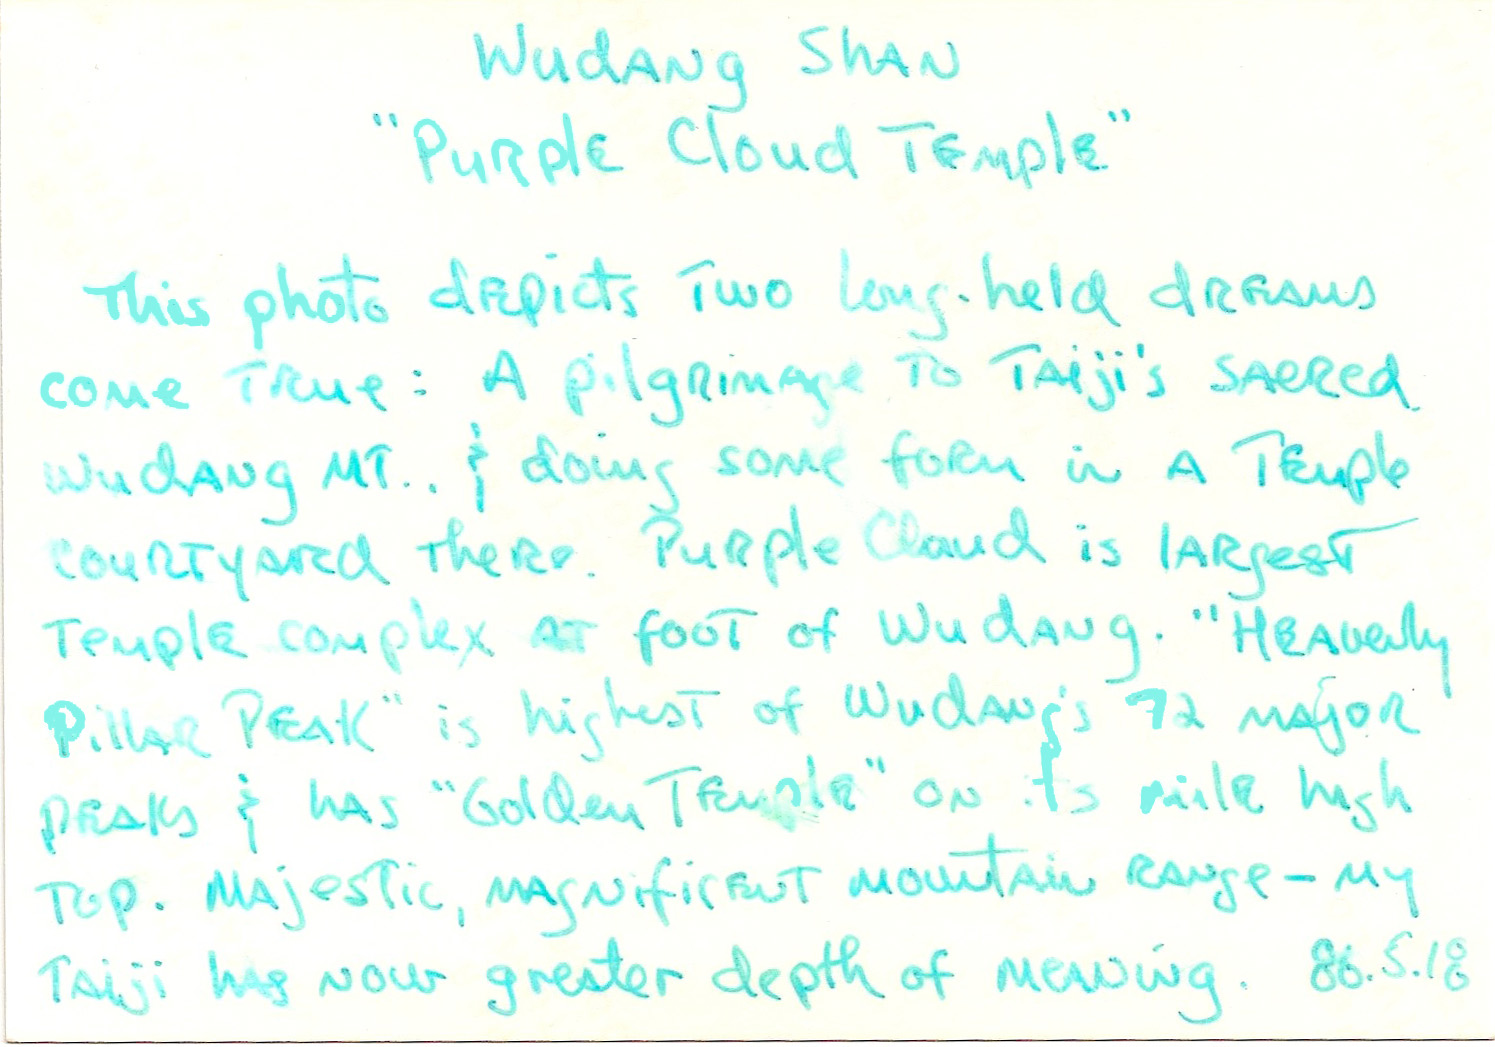 Wudang Shan
"Purple Cloud Temple"
This photo depicts two long-held dreams
come true: A pilgrimage to Taiji's sacred
Wudang Mt.. & doing some form in a temple
courtyard there. Purple Cloud is largest
temple complex at foot of Wudang. "Heavenly
Pillar Peak" is highest of Wudang's 72 major
peaks & has "Golden Temple" on its mile high
top. Majestic, magnificent mountain range – my
Taiji has now greater depth of meaning. 86.5.18